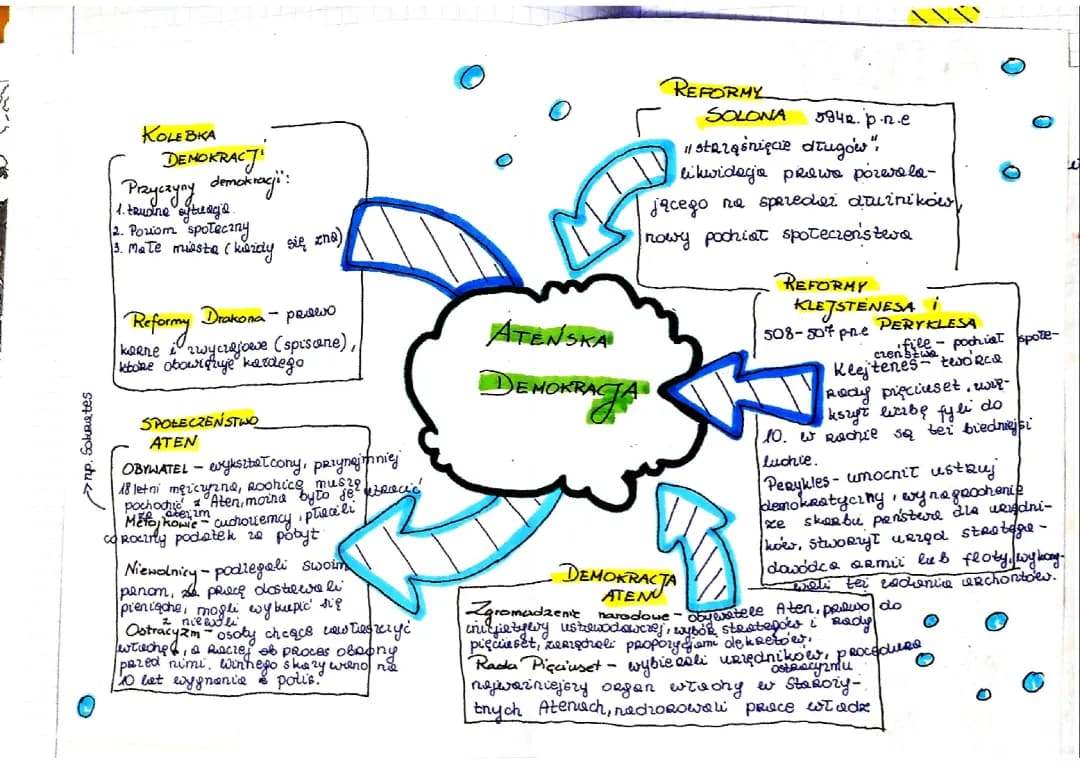 KOLEBKA
DEMOKRACJI
Przyczyny demokracji:
1. trudna sytuacja
2. Poziom społeczny
3. Małe miasta (każdy się zna)
Reformy Drakona - prawo
karne i zwyczajowe (spisane),
które obowiązuje każdego
REFORMY
SOLONA 594r. p.n.e
"strząśnięcie długów",
likwidacja prawa pozwala-
jącego na sprzedaż dłużników,
nowy podział społeczeństwa
ATEŃSKA
DEMOKRACJA
REFORMY
KLEJSTENESA i
PERYKLESA
508-507 pne
file - podział społe-
czeństwa
Klejtenes - twórca
Rady pięciuset, zwię-
kszył liczbę fyli do
10. w radzie są też biedniejsi
ludzie.
Perykles - umocnił ustrój
demokratyczny, wynagrodzenie
ze skarbu państwa dla urzędni-
ków, stworzył urząd stratega -
dowódca armii lub floty, wykony-
wali też zadania archontów.
→ np. Sokrates
SPOŁECZEŃSTWO
ATEN
OBYWATEL - wykształcony, przynajmniej
18 letni mężczyzna, rodzice muszą
pochodzić z Aten, można było je utracić
za ateizm
Metojkowie - cudzoziemcy, płacili
coroczny podatek za pobyt
Niewolnicy - podlegali swoim
panom, za pracę dostawali
pieniądze, mogli wykupić się
z niewoli
Ostracyzm - osoby chcące zawłaszczyć
władzę, a raczej proces obrony
przed nimi. Winnego skazywano na
10 lat wygnania z polis.
DEMOKRACJA
ATEN
Zgromadzenie narodowe - obywatele Aten, prawo do
inicjatywy ustawodawczej, wybór strategów i Rady
pięciuset, zarządzali propozycjami dekretów.
Rada Pięciuset - wybierali urzędników, procedura
ostracyzmu
najważniejszy organ władzy w Staroży-
tnych Atenach, nadzorowali pracę władz